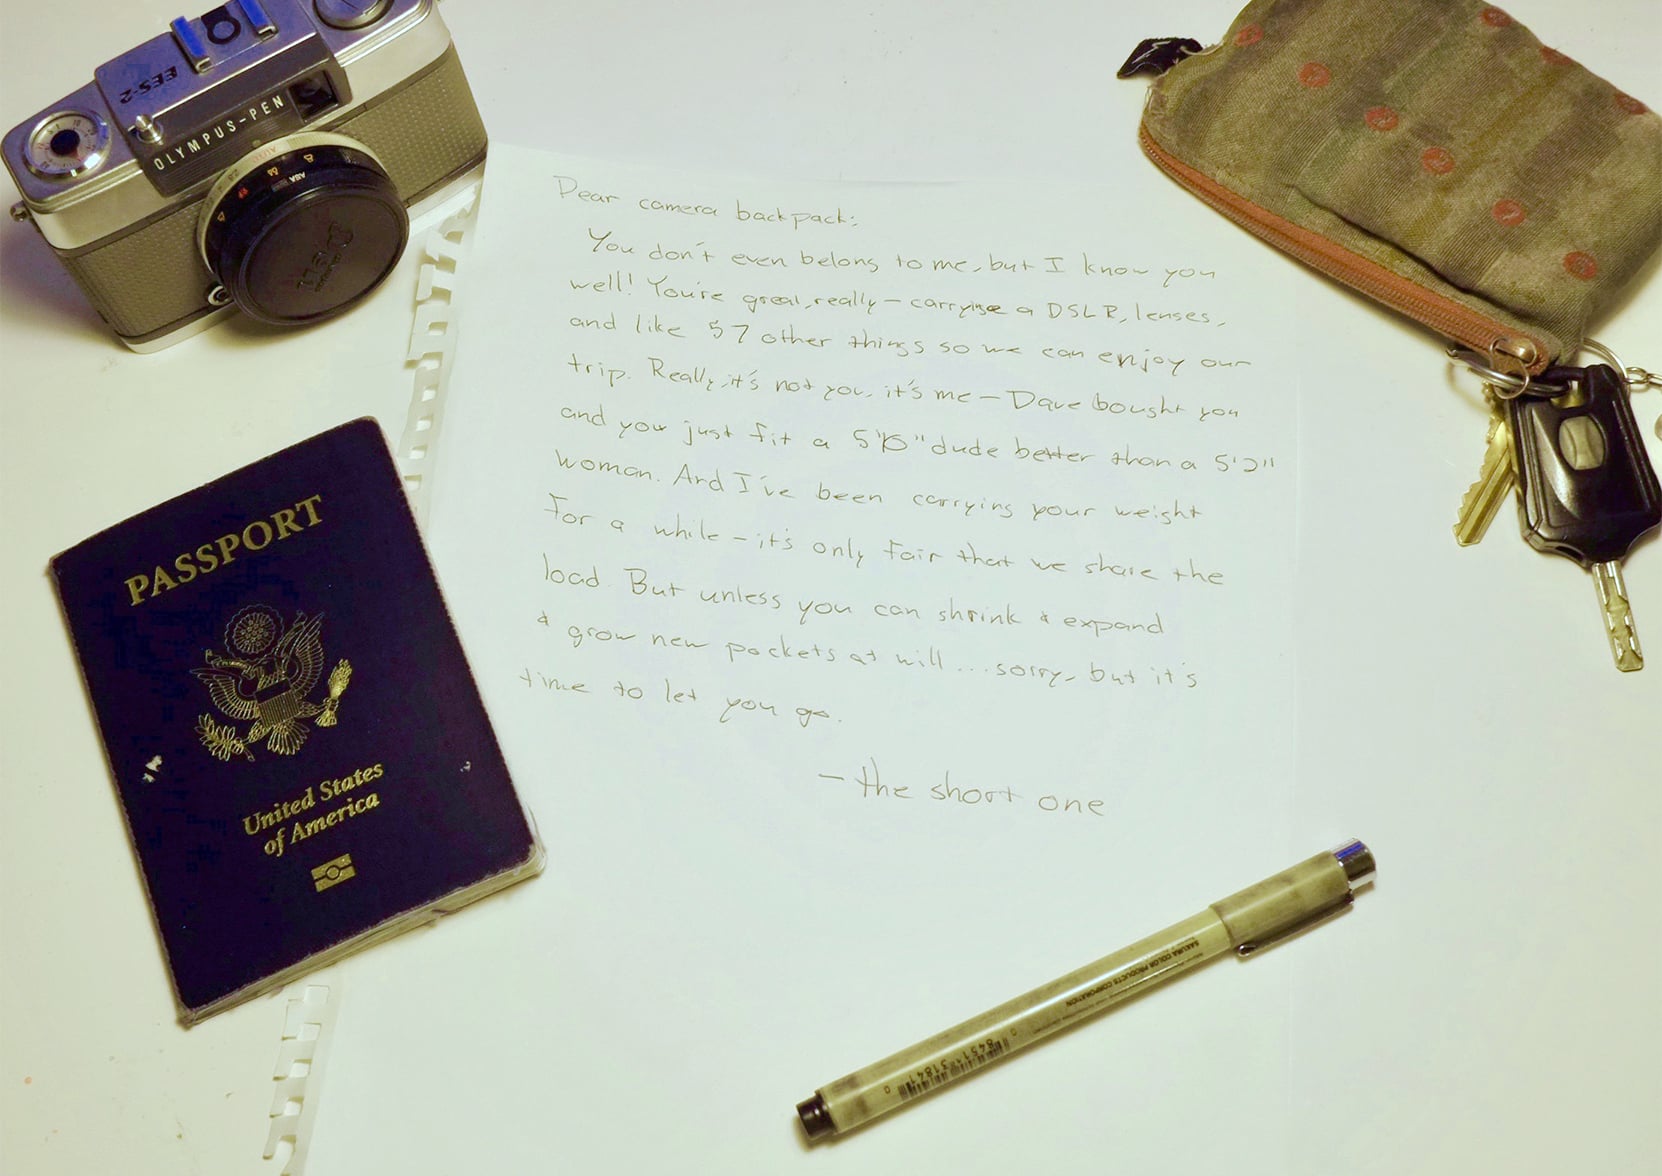 EES-2
OLYMPUS-PEN
Dear camera backpack:
You don't even belong to me, but I know you
well! You're great, really — carrying a DSLR, lenses,
and like 57 other things so we can enjoy our
trip. Really, it's not you, it's me — Dave bought you
and you just fit a dude better than a 5'2"
woman. And I've been carrying your weight
for a while — it's only fair that we share the
load. But unless you can shrink & expand
& grow new pockets at will ... sorry, but it's
time to let you go.
— the short one
PASSPORT
United States
of America
SAKURA COLOR PRODUCTS CORPORATION